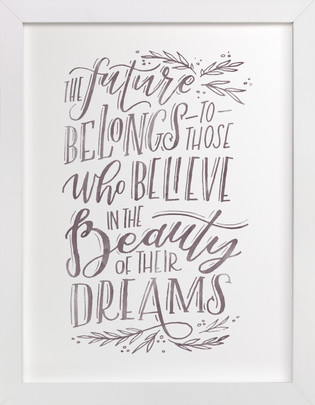 THE future
BELONGS -TO- THOSE
who BELIEVE
IN THE
Beauty
OF THEIR
DREAMS